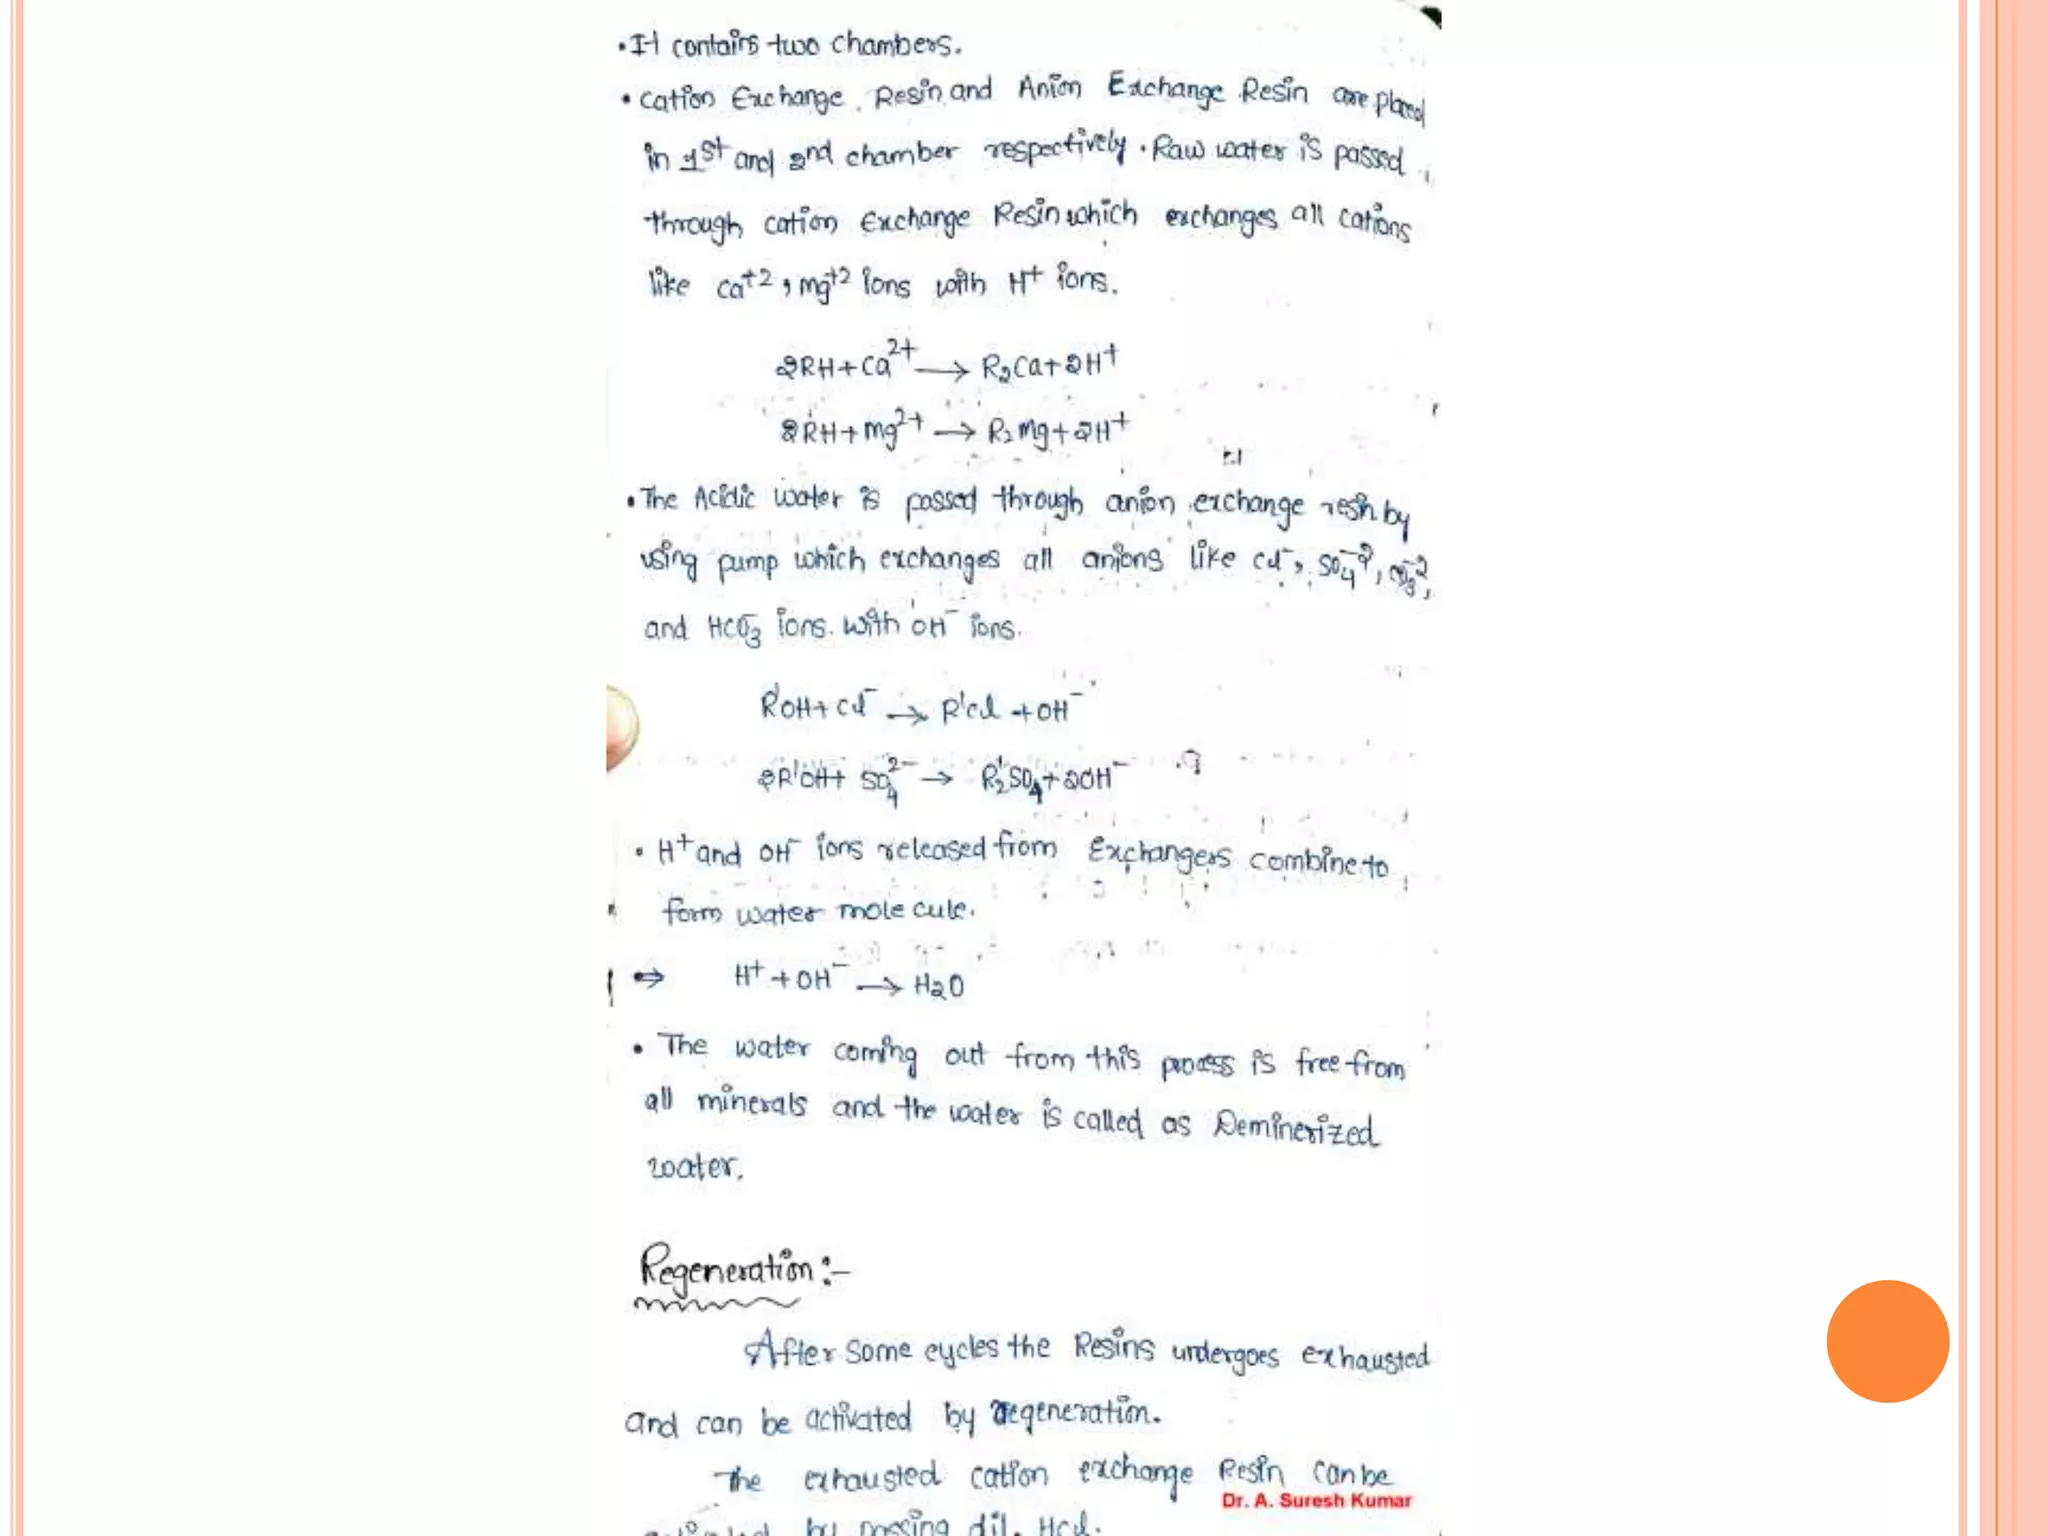 • It contains two chambers.
• Cation Exchange Resin and Anion Exchange Resin are placed
in 1st and 2nd chamber respectively. Raw water is passed
through cation Exchange Resin which exchanges all cations
like Ca+2, mg+2 ions with H+ ions.
2RH + Ca2+ → R2Ca + 2H+
2RH + mg2+ → R2mg + 2H+
• The Acidic water is passed through anion exchange resin by
using pump which exchanges all anions like Cl-, SO4-2, CO3-2,
and HCO3- ions. with OH- ions.
R'OH + Cl- → R'Cl + OH-
2R'OH + SO4 2- → R2'SO4 + 2OH-
• H+ and OH- ions released from Exchangers combine to
form water molecule.
⇒ H+ + OH- → H2O
• The water coming out from this process is free from
all minerals and the water is called as Deminerized
water.
Regeneration:-
After some cycles the Resins undergoes exhausted
and can be activated by regeneration.
The exhausted cation exchange Resin can be
Dr. A. Suresh Kumar
by passing dil. HCl.